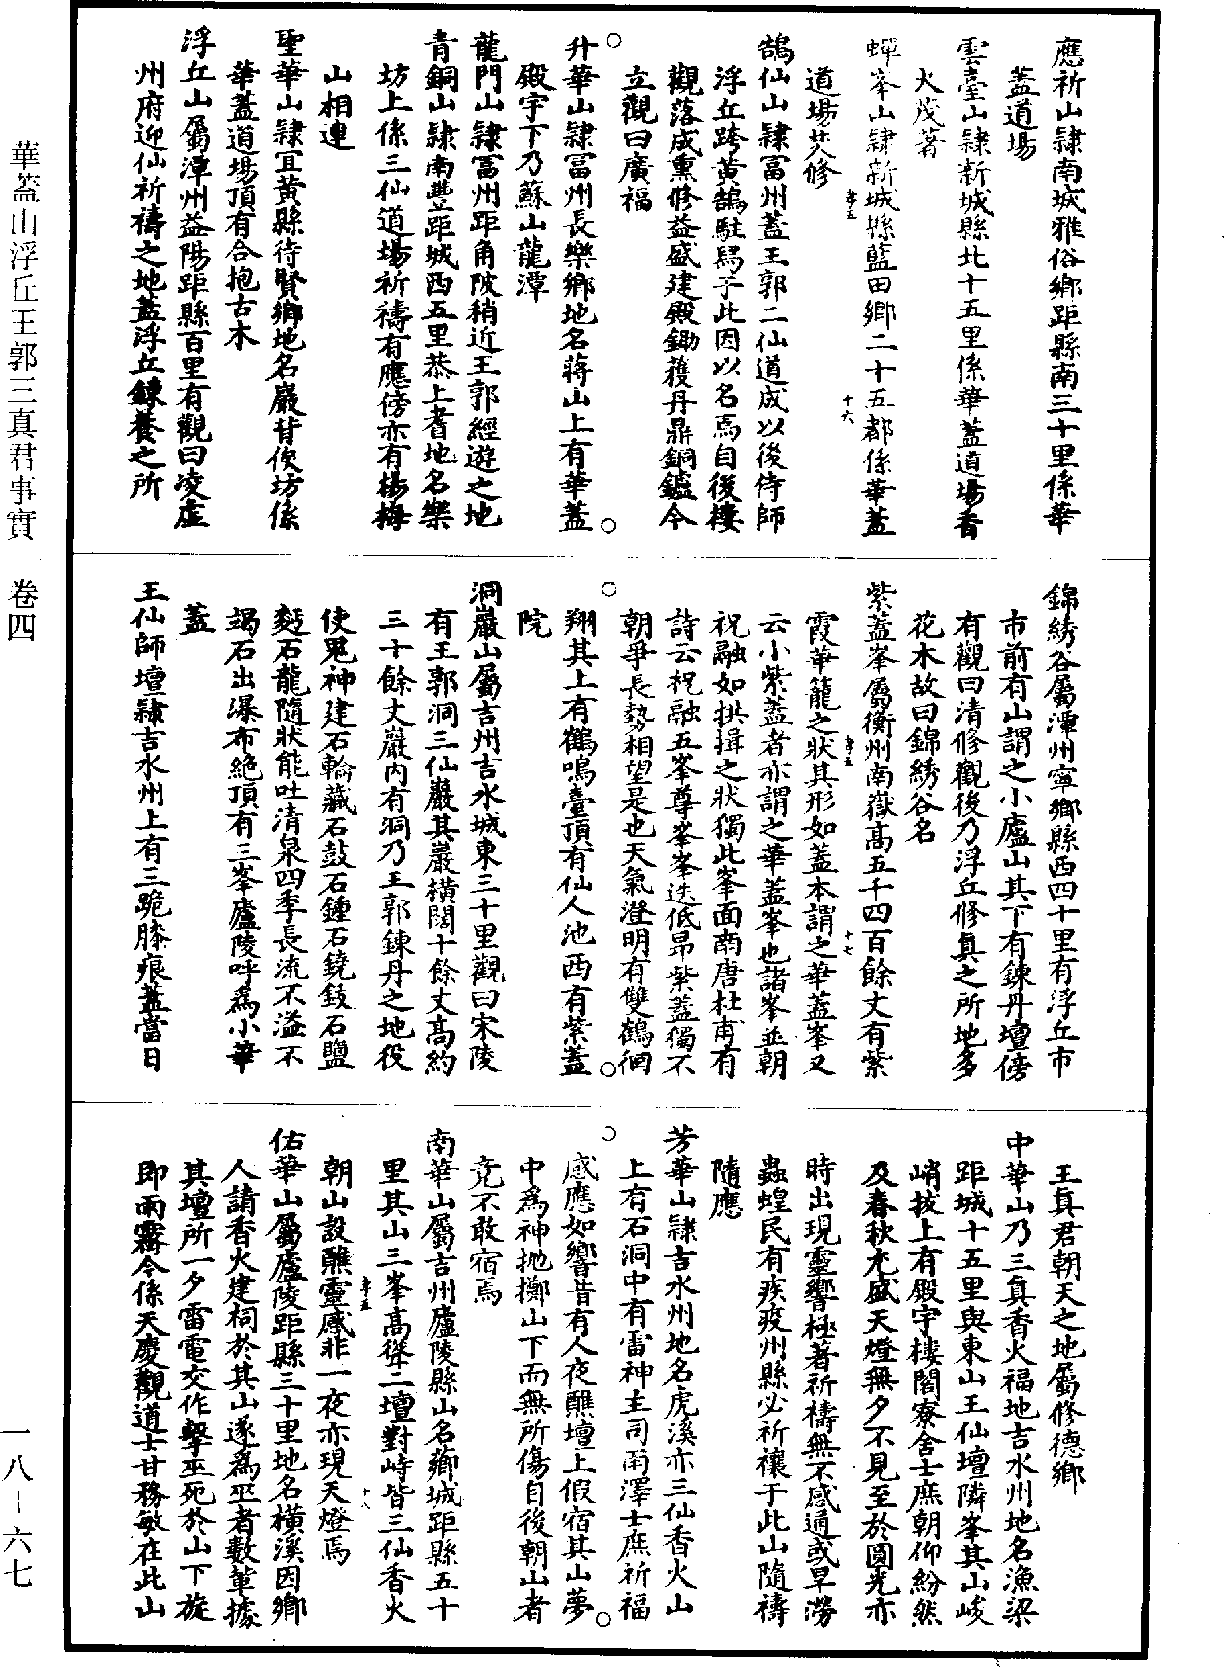 應祈山隸南城雅俗鄉距縣南三十里係華
蓋道場
雲臺山隸新城縣北十五里係華蓋道場香
火茂著
蟬峯山隸新城縣藍田鄉二十五都係華蓋
孝五
十六
道場焚修
鵠仙山隸富州蓋王郭二仙道成以後侍師
浮丘跨黃鵠駐舄于此因以名焉自後棲
觀落成熏修益盛建殿鋤穫丹鼎銅鑪今
立觀曰廣福
升華山隸富州長樂鄉地名蔣山上有華蓋
殿宇下乃蘇山龍潭
龍門山隸富州距角陂稍近王郭經遊之地
青銅山隸南豐距城西五里恭上耆地名樂
坊上係三仙道場祈禱有應傍亦有楊梅
山相連
聖華山隸宜黃縣待賢鄉地名嚴背俠坊係
華蓋道場頂有合抱古木
浮丘山屬潭州益陽距縣百里有觀曰凌虛
州府迎仙祈禱之地蓋浮丘鍊養之所
錦綉谷屬潭州寧鄉縣西四十里有浮丘市
市前有山謂之小廬山其下有鍊丹壇傍
有觀曰清修觀後乃浮丘修真之所地多
花木故曰錦綉谷名
紫蓋峯屬衡州南嶽高五千四百餘丈有紫
霞華籠之狀其形如蓋本謂之華蓋峯又
孝五
十七
云小紫蓋者亦謂之華蓋峯也諸峯並朝
祝融如拱揖之狀獨此峯面南唐杜甫有
詩云祝融五峯尊峯峯迭低昂紫蓋獨不
朝爭長勢相望是也天氣澄明有雙鶴徊
翔其上有鶴鳴臺頂有仙人池西有紫蓋
院
洞巖山屬吉州吉水城東三十里觀曰宋陵
有王郭洞三仙巖其巖橫闊十餘丈高約
三十餘丈巖內有洞乃王郭鍊丹之地役
使鬼神建石輪藏石鼓石鍾石鐃鈸石鹽
麪石龍隨狀能吐清泉四季長流不溢不
竭石出瀑布絕頂有三峯廬陵呼為小華
蓋
王仙師壇隸吉水州上有三跪膝痕蓋當日
王真君朝天之地屬修德鄉
中華山乃三真香火福地吉水州地名漁梁
距城十五里與東山王仙壇隣峯其山峻
峭拔上有殿宇樓閣寮舍士庶朝仰紛然
及春秋尤盛天燈無夕不見至於圓光亦
時出現靈響極著祈禱無不感通或旱澇
蟲蝗民有疾疫州縣必祈禳于此山隨禱
隨應
芳華山隸吉水州地名虎溪亦三仙香火山
上有石洞中有雷神主司雨澤士庶祈福
感應如響昔有人夜醮壇上假宿其山夢
中為神拋擲山下而無所傷自後朝山者
竟不敢宿焉
南華山屬吉州廬陵縣山名薌城距縣五十
里其山三峯高聳二壇對峙皆三仙香火
朝山設醮靈感非一夜亦現天燈焉
孝五
十八
佑華山屬廬陵距縣三十里地名橫溪因鄉
人請香火建祠於其山遂為巫者數輩據
其壇所一夕雷電交作擊巫死於山下旋
即雨霽今係天慶觀道士甘務敏在此山
華蓋山浮丘王郭三真君事實 卷四
一八－六七